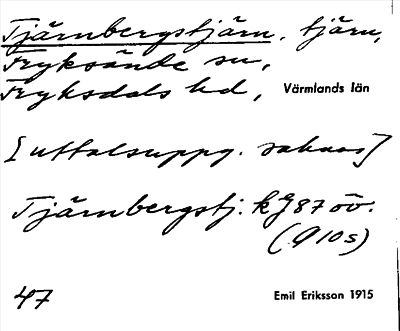 Tjärnbergstjärn, tjärn,
Fryksände sn,
Fryksdals hd, Värmlands län
[uttalsuppg. saknas]
Tjärnbergstj: kg 87 öv.
(910s)
47 Emil Eriksson 1915